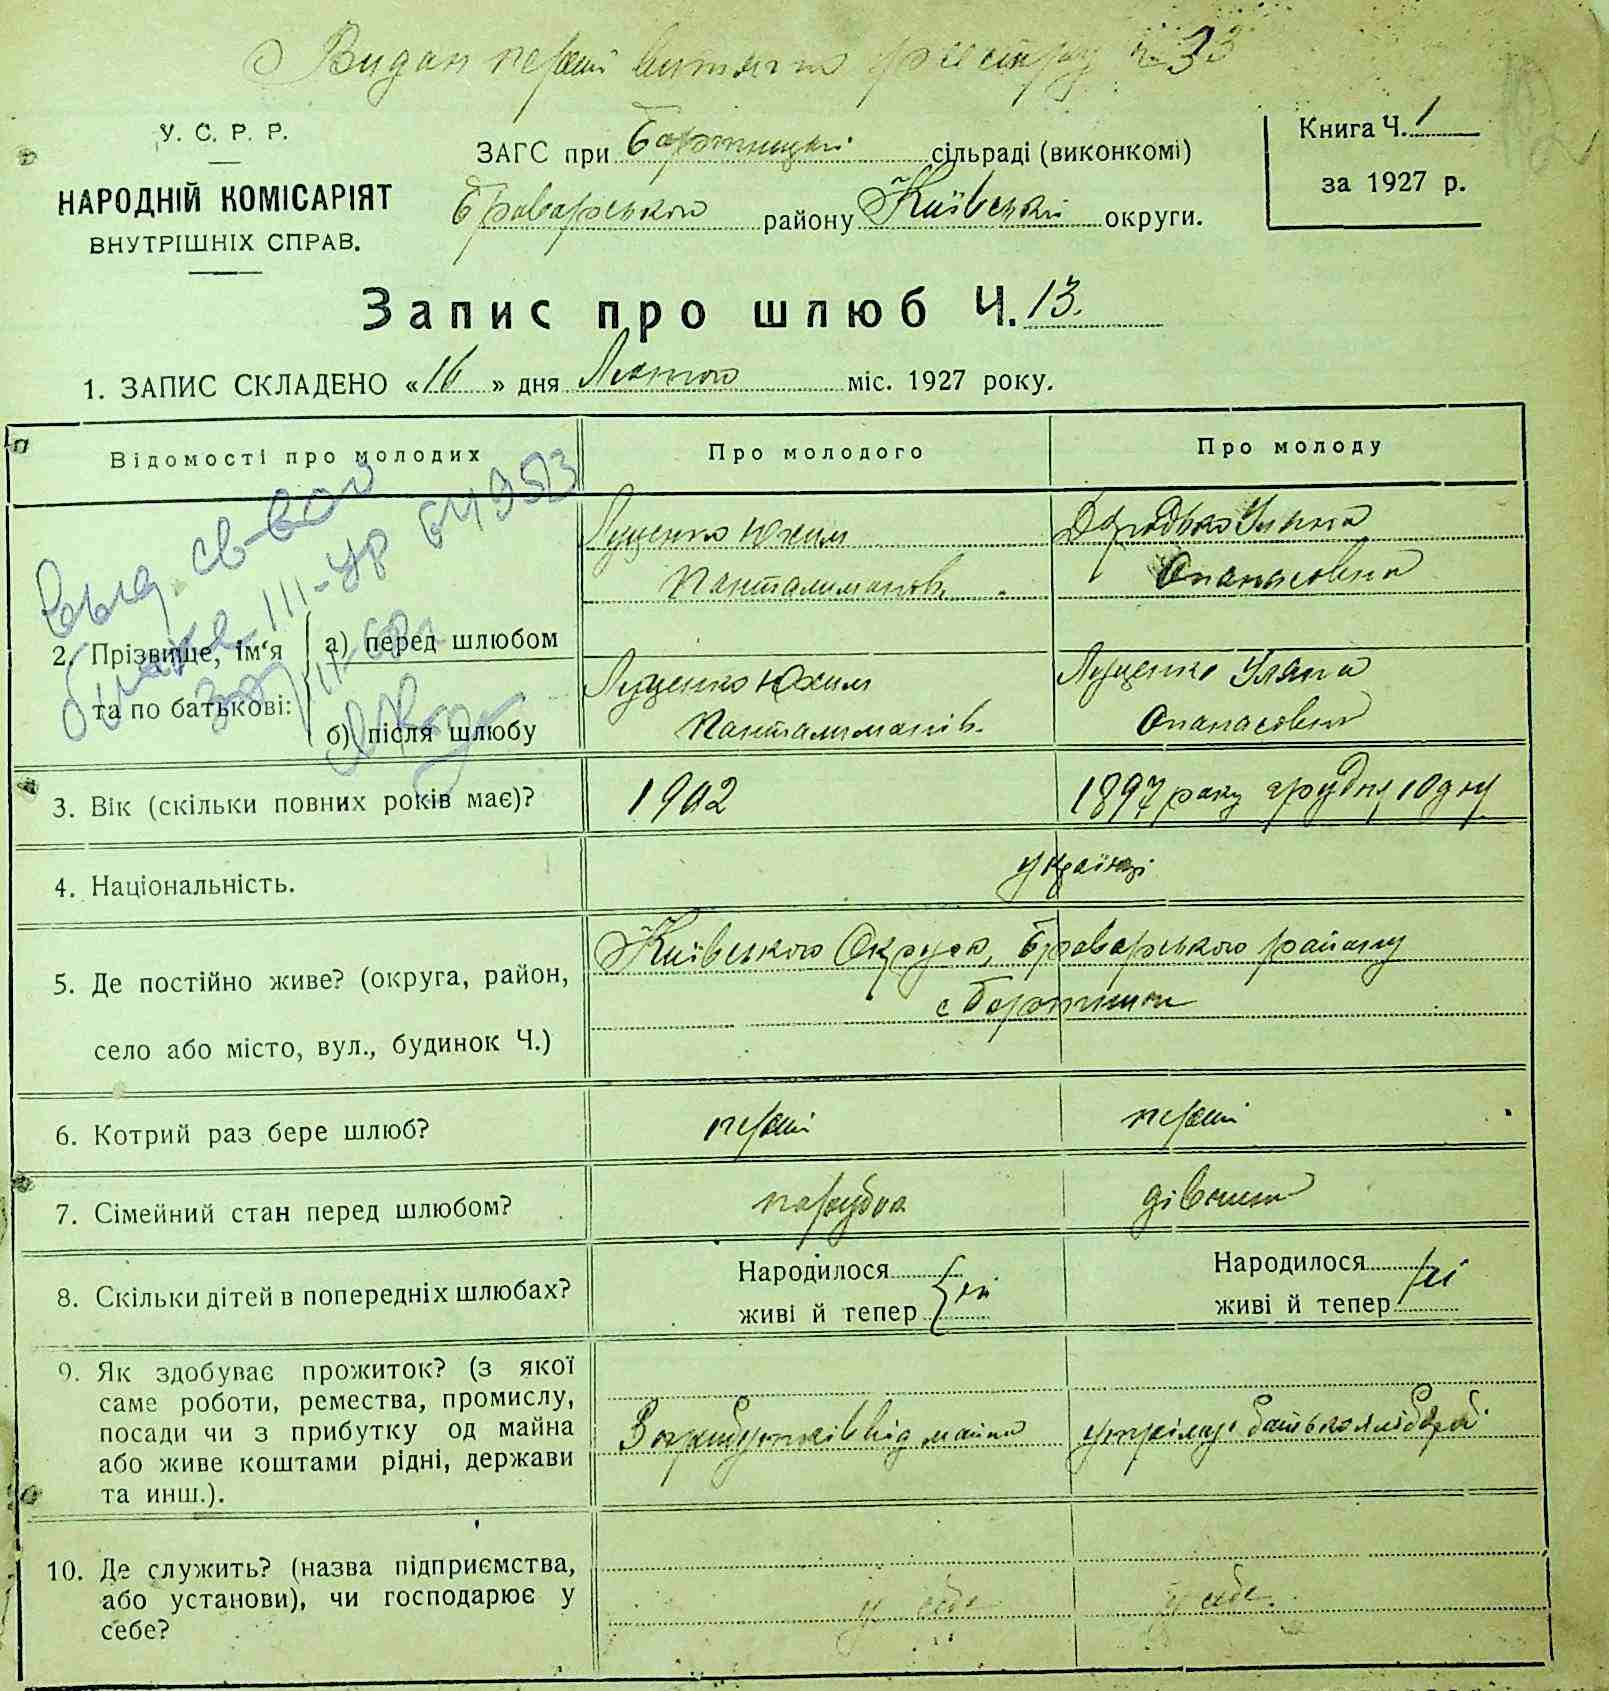 Видан перший витяг по реєстру № 33
У. С. Р. Р.
НАРОДНІЙ КОМІСАРІЯТ
ВНУТРІШНІХ СПРАВ.
ЗАГС при Бортницькій сільраді (виконкомі)
Броварського району Київської округи.
Книга Ч. 1
за 1927 р.
Запис про шлюб Ч. 13.
1. ЗАПИС СКЛАДЕНО «16» дня Лютого міс. 1927 року.
Відомості про молодих
Про молодого
Про молоду
2. Прізвище, ім'я та по батькові:
а) перед шлюбом
Луценко Юхим
Панталимонов.
Уляна
Опанасовна
б) після шлюбу
Луценко Юхим
Панталимонів.
Луценко Уляна
Опанасовна
Выд. св-во
III-УР
3. Вік (скільки повних років має)?
1902
1897 року грудня 10 дня
4. Національність.
українці
5. Де постійно живе? (округа, район,
село або місто, вул., будинок Ч.)
Київського Округа, Броварського району
с Бортничи
6. Котрий раз бере шлюб?
перший
перший
7. Сімейний стан перед шлюбом?
парубок
дівчина
8. Скільки дітей в попередніх шлюбах?
Народилося
живі й тепер
Народилося
живі й тепер
9. Як здобуває прожиток? (з якої
саме роботи, ремества, промислу,
посади чи з прибутку од майна
або живе коштами рідні, держави
та инш.).
З прибутків від майна
10. Де служить? (назва підприємства,
або установи), чи господарює у
себе?
у себе
у себе.